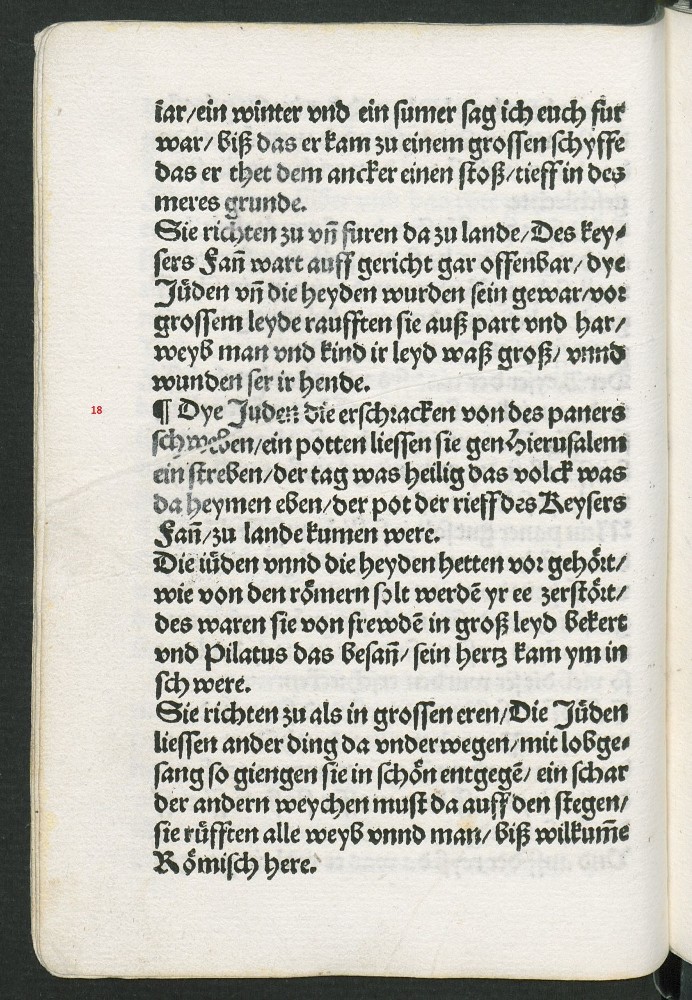 iar/ein winter vnd ein sumer sag ich euch fur
war/ biß das er kam zu einem grossen schyffe
das er thet dem ancker einen stoß/tieff in des
meres grunde.
Sie richten zu vñ furen da zu lande/Des key⸗
sers Fañ wart auff gericht gar offenbar/ dye
Jüden vñ die heyden wurden sein gewar/vor
grossem leyde raufften sie auß part vnd har/
weyb man vnd kind ir leyd waß groß/ vnnd
wunden ser ir hende.
18
¶ Dye Juden die erschracken von des paners
schweben/ein potten liessen sie gen Hierusalem
ein streben/der tag was heilig das volck was
da heymen eben/der pot der rieff des Keysers
Fañ/zu lande kumen were.
Die iüden vnnd die heyden hetten vor gehört/
wie von den römern solt werdē yr ee zerstört/
des waren sie von frewdē in groß leyd bekert
vnd Pilatus das besañ/ sein hertz kam ym in
schwere.
Sie richten zu als in grossen eren/Die Jüden
liessen ander ding da vnderwegen/mit lobge⸗
sang so giengen sie in schön entgegē/ ein schar
der andern weychen must da auff den stegen/
sie rüfften alle weyb vnnd man/ biß wilkum̄e
Römisch here.